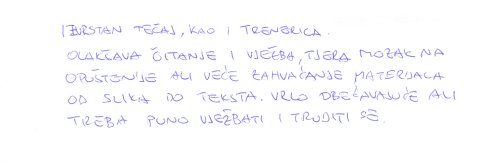 IZVRSTAN TEČAJ, KAO I TRENERICA.
OLAKŠAVA ČITANJE I VJEŽBA, TJERA MOZAK NA
OPUŠTENIJE ALI VEĆE ZAHVAĆANJE MATERIJALA
OD SLIKA DO TEKSTA. VRLO OBEĆAVAJUĆE ALI
TREBA PUNO VJEŽBATI I TRUDITI SE.